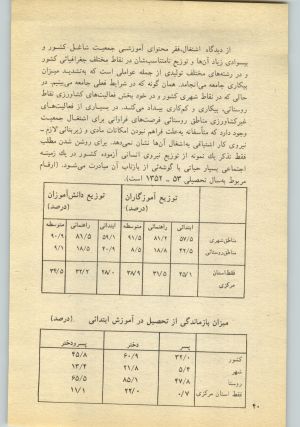 از دیدگاه اشتغال، فقر محتوای آموزشی جمعیت شاغل کشور و
بیسوادی زیاد آن‌ها و توزیع نامتناسب‌شان در نقاط مختلف جغرافیائی کشور
و در رشته‌های مختلف تولیدی از جمله عواملی است که به‌تشدید میزان
بیکاری جامعه می‌انجامد. همان گونه که در شرایط فعلی جامعه می‌بینیم، در
حالی که در نقاط شهری کشور و در خود بخش فعالیت‌های کشاورزی نقاط
روستائی، بیکاری و کم‌کاری بیداد می‌کند. در بسیاری از فعالیت‌های
غیرکشاورزی مناطق روستائی فرصت‌های فراوانی برای اشتغال جمعیت
وجود دارد که متأسفانه به‌علت فراهم نبودن امکانات مادی و زیربنائی لازم،
نیروی کار اشتیاقی به‌اشتغال آن‌ها نشان نمی‌دهد. برای روشن شدن مطلب
فقط بذکر یک نمونه از توزیع نیروی انسانی آزموده کشور در یک زمینه
اجتماعی بسیار حیاتی با گوشه‌ئی از بازتاب آن مبادرت می‌شود. (ارقام
مربوط به‌سال تحصیلی ۵۳ ـ ۱۳۵۲ است).
توزیع آموزگاران (درصد) توزیع دانش‌آموزان (درصد)
ابتدائی راهنمائی متوسطه ابتدائی راهنمائی متوسطه
مناطق‌شهری ۵۷/۵ ۸۱/۲ ۹۱/۵ ۵۹/۱ ۸۱/۵ ۹۰/۹
مناطق‌روستائی ۴۲/۵ ۱۸/۸ ۸/۵ ۴۰/۹ ۱۸/۵ ۹/۱
فقط‌استان مرکزی ۲۵/۱ ۳۱/۵ ۳۸/۹ ۲۸/۰ ۳۲/۲ ۳۹/۵
میزان بازماندگی از تحصیل در آموزش ابتدائی (درصد)
پسر دختر پسرودختر
کشور ۳۲/۰ ۶۰/۹ ۴۵/۸
شهر ۵/۴ ۲۱/۸ ۱۳/۴
روستا ۴۷/۸ ۸۵/۱ ۶۵/۵
فقط استان مرکزی ۰/۷ ۲۲/۰ ۱۱/۱
۴۰